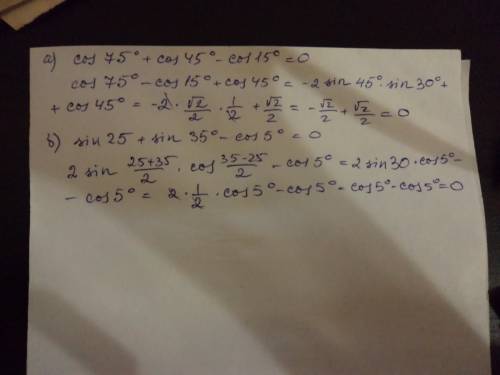 a) cos 75° + cos 45° - cos 15° = 0
cos 75° - cos 15° + cos 45° = -2 sin 45° · sin 30° +
+ cos 45° = -2 · √2/2 · 1/2 + √2/2 = -√2/2 + √2/2 = 0
b) sin 25 + sin 35° - cos 5° = 0
2 sin (25+35)/2 · cos (35-25)/2 - cos 5° = 2 sin 30 · cos 5° -
- cos 5° = 2 · 1/2 · cos 5° - cos 5° - cos 5° - cos 5° = 0